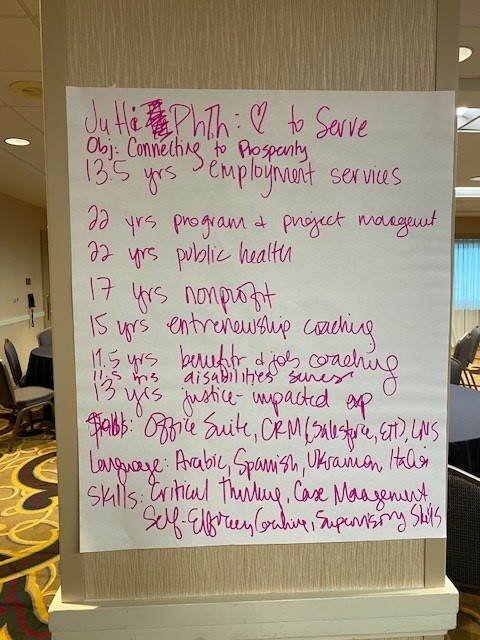 Ju Hi PhTh: ♡ to Serve
Obj: Connecting to Prosperity
13.5 yrs employment services
22 yrs program & project management
22 yrs public health
17 yrs nonprofit
15 yrs entrenewship coaching
11.5 yrs benefits & job coaching
11.5 yrs disabilities
13 yrs justice-impacted exp
Skills: Office Suite, CRM (Salesforce, ETT), LMS
Language: Arabic, Spanish, Ukranian, Italian
Skills: Critical Thinking, Case Management,
Self-Efficacy Coaching, Supervisory Skills